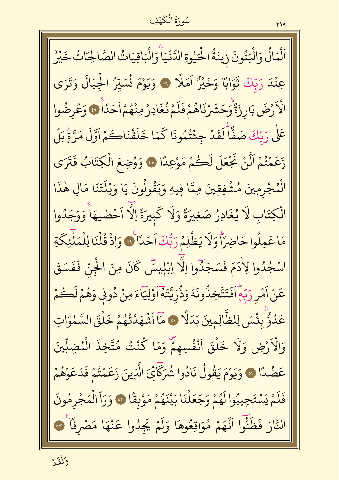 سُورَةُ الْكَهْفِ
٢٩٩
اَلْمَالُ وَالْبَنُونَ زِينَةُ الْحَيٰوةِ الدُّنْيَاۚ وَالْبَاقِيَاتُ الصَّالِحَاتُ خَيْرٌ
عِنْدَ رَبِّكَ ثَوَابًا وَخَيْرٌ اَمَلًا ﴿٤٦﴾ وَيَوْمَ نُسَيِّرُ الْجِبَالَ وَتَرَى
الْاَرْضَ بَارِزَةًۙ وَحَشَرْنَاهُمْ فَلَمْ نُغَادِرْ مِنْهُمْ اَحَدًاۚ ﴿٤٧﴾ وَعُرِضُوا
عَلٰى رَبِّكَ صَفًّاۜ لَقَدْ جِئْتُمُونَا كَمَا خَلَقْنَاكُمْ اَوَّلَ مَرَّةٍۘ بَلْ
زَعَمْتُمْ اَلَّنْ نَجْعَلَ لَكُمْ مَوْعِدًا ﴿٤٨﴾ وَوُضِعَ الْكِتَابُ فَتَرَى
الْمُجْرِمِينَ مُشْفِقِينَ مِمَّا فِيهِ وَيَقُولُونَ يَا وَيْلَتَنَا مَالِ هٰذَا
الْكِتَابِ لَا يُغَادِرُ صَغِيرَةً وَلَا كَبِيرَةً اِلَّٓا اَحْصٰيهَاۚ وَوَجَدُوا
مَا عَمِلُوا حَاضِرًاۜ وَلَا يَظْلِمُ رَبُّكَ اَحَدًا۟ ﴿٤٩﴾ وَاِذْ قُلْنَا لِلْمَلٰٓئِكَةِ
اسْجُدُوا لِاٰدَمَ فَسَجَدُٓوا اِلَّٓا اِبْلِيسَۜ كَانَ مِنَ الْجِنِّ فَفَسَقَ
عَنْ اَمْرِ رَبِّهِۜ اَفَتَتَّخِذُونَهُ وَذُرِّيَّتَهُٓ اَوْلِيَٓاءَ مِنْ دُونِي وَهُمْ لَكُمْ
عَدُوٌّۜ بِئْسَ لِلظَّالِمِينَ بَدَلًا ﴿٥٠﴾ مَٓا اَشْهَدْتُهُمْ خَلْقَ السَّمٰوَاتِ
وَالْاَرْضِ وَلَا خَلْقَ اَنْفُسِهِمْۖ وَمَا كُنْتُ مُتَّخِذَ الْمُضِلِّينَ
عَضُدًا ﴿٥١﴾ وَيَوْمَ يَقُولُ نَادُوا شُرَكَٓاءِيَ الَّذِينَ زَعَمْتُمْ فَدَعَوْهُمْ
فَلَمْ يَسْتَجِيبُوا لَهُمْ وَجَعَلْنَا بَيْنَهُمْ مَوْبِقًا ﴿٥٢﴾ وَرَاَ الْمُجْرِمُونَ
النَّارَ فَظَنُّٓوا اَنَّهُمْ مُوَاقِعُوهَا وَلَمْ يَجِدُوا عَنْهَا مَصْرِفًا۟ ﴿٥٣﴾
وَلَقَدْ